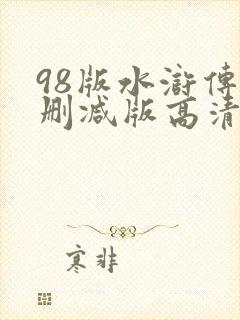 98版水滸傳
删减版高清
寒非